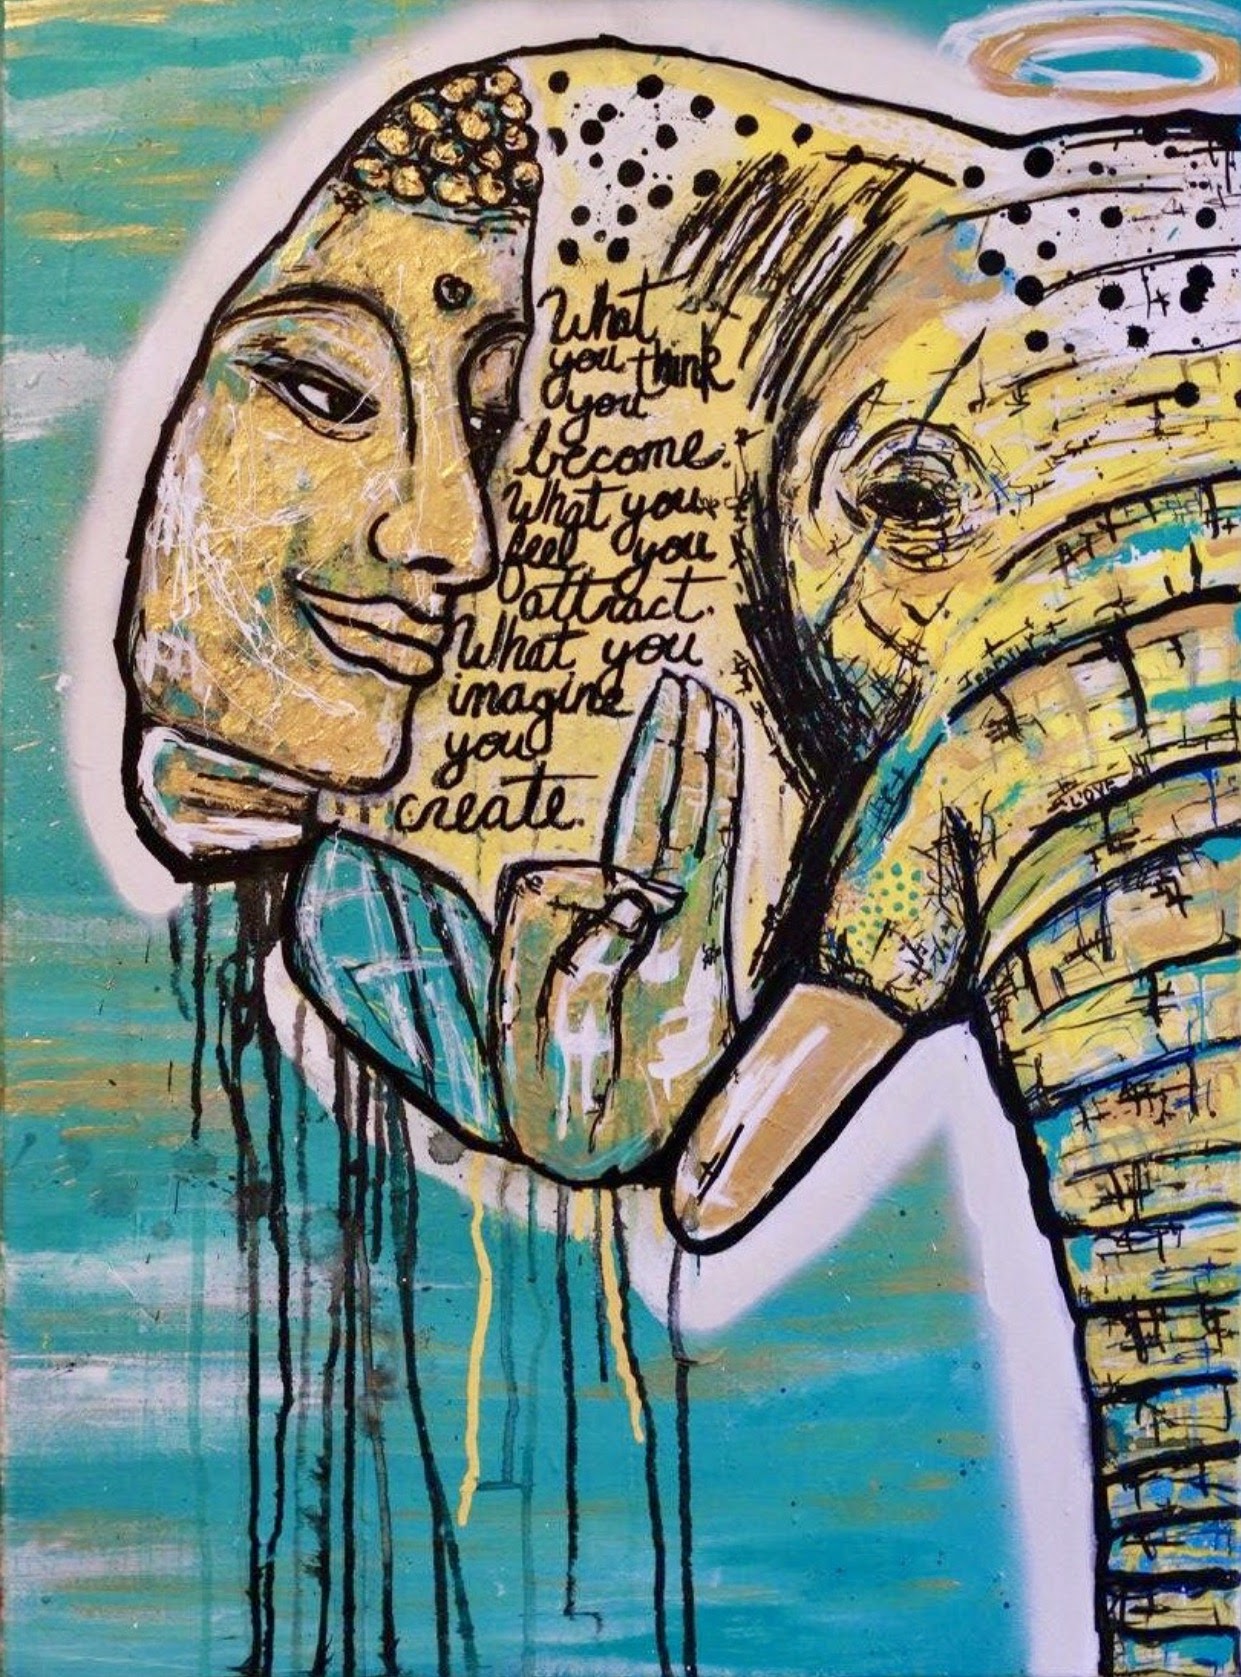 What
you think
you
become.
What you
feel you
attract.
What you
imagine
you
create.
FAMILY
LOVE